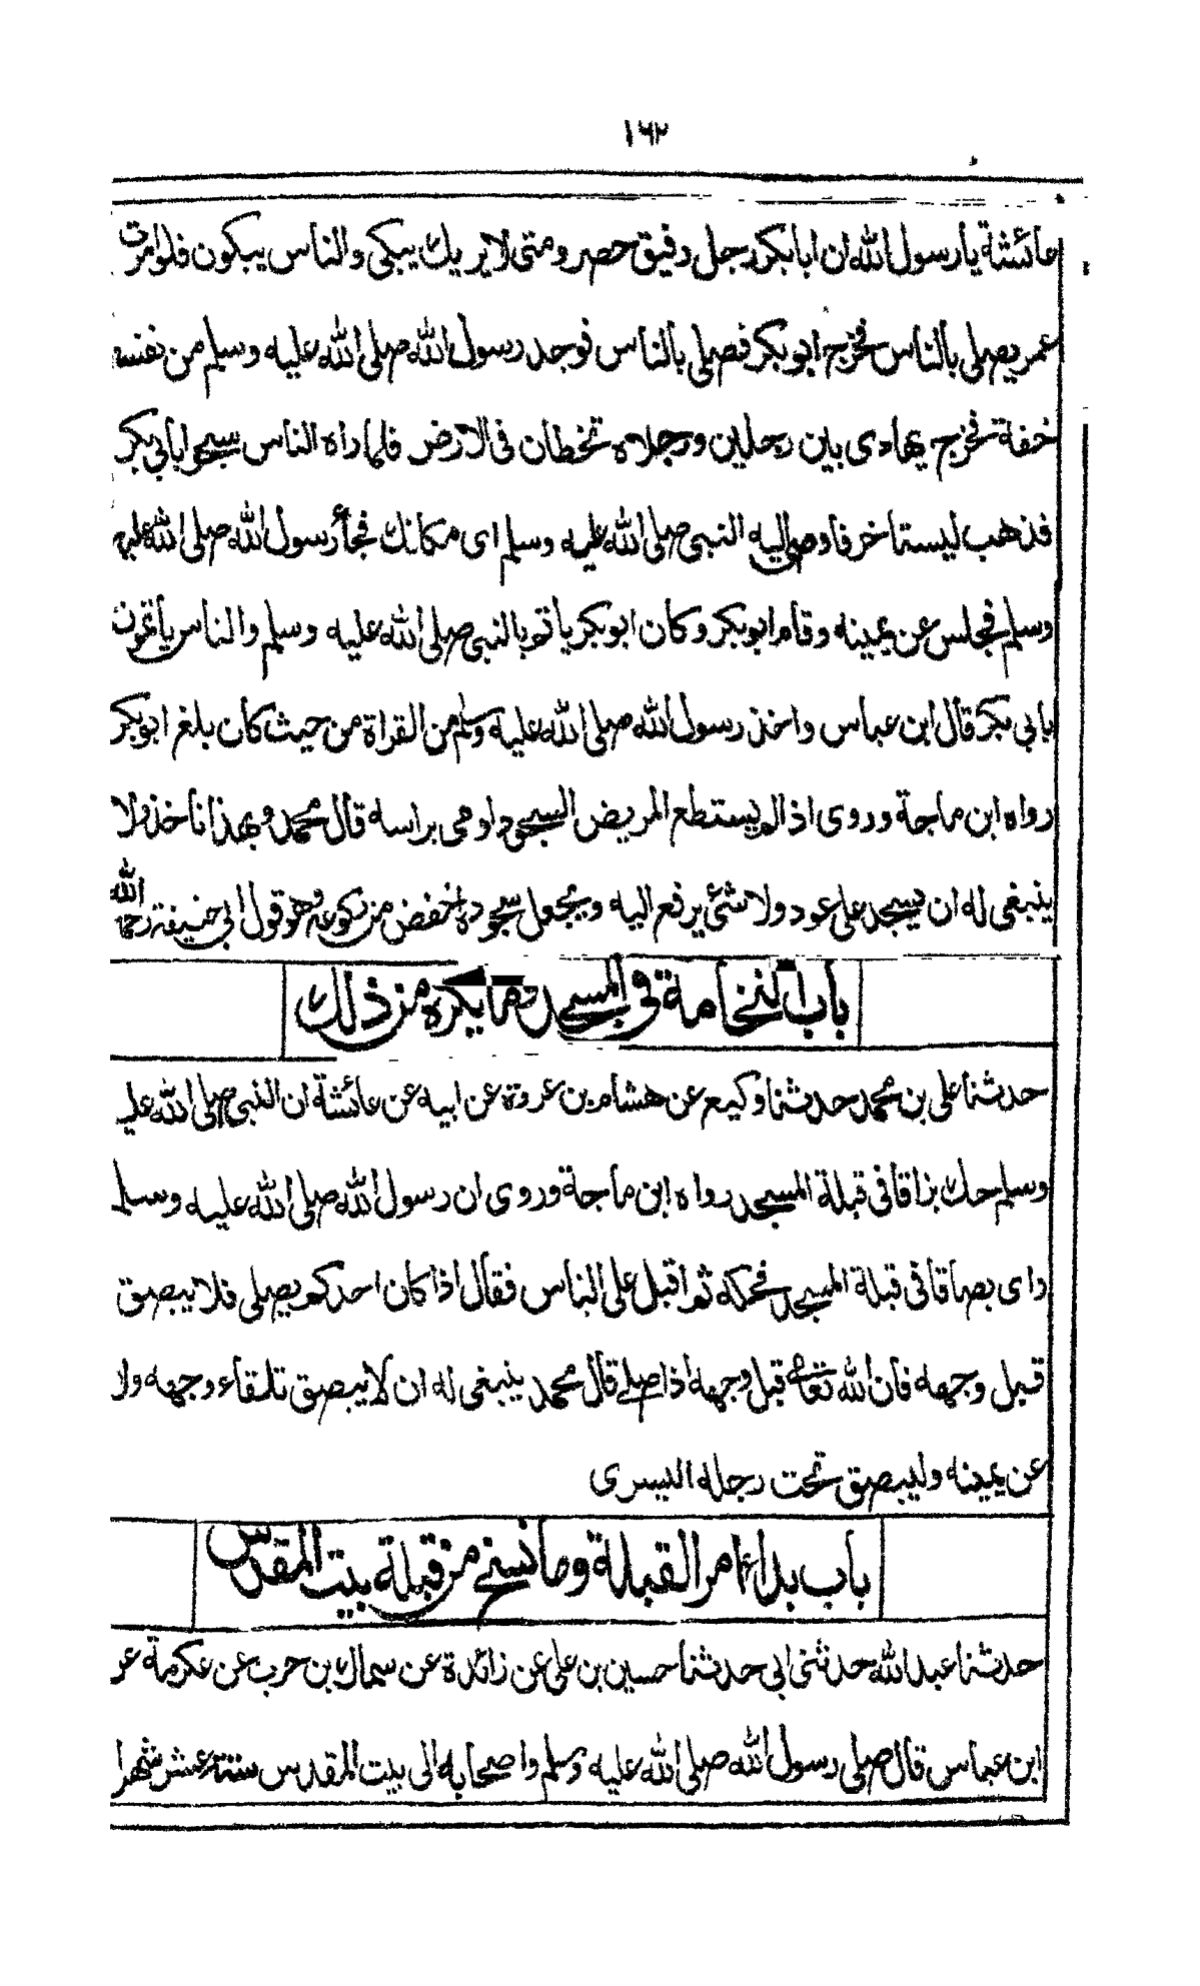 ١٦٢
عائشة يا رسول الله ان ابا بكر رجل رقيق حصر ومتى لا يريك يبكي والناس يبكون فلو امرت
عمر يصلي بالناس فخرج ابو بكر فصلى بالناس فوجد رسول الله صلى الله عليه وسلم من نفسه
خفة فخرج يهادى بين رجلين ورجلاه تخطان فى الارض فلما راه الناس سبحوا بابي بكر
فذهب ليستاخر فاومى اليه النبي صلى الله عليه وسلم اى مكانك فجأ رسول الله صلى الله عليه
وسلم فجلس عن يمينه وقام ابو بكر وكان ابو بكر ياتم بالنبي صلى الله عليه وسلم والناس ياتمون
بابي بكر قال ابن عباس واخذ رسول الله صلى الله عليه وسلم من القراة من حيث كان بلغ ابو بكر
رواه ابن ماجة وروى اذا لم يستطع المريض السجود اومى براسه قال محمد وبهذا ناخذ ولا
ينبغى له ان يسجد على عود ولا شئ يرفع اليه ويجعل سجوده اخفض من ركوعه وهو قول ابي حنيفة رحمه الله
باب النخامة فى المسجد وما يكره من ذلك
حدثنا على بن محمد حدثنا وكيع عن هشام بن عروة عن ابيه عن عائشة ان النبي صلى الله عليه
وسلم حك بزاقا فى قبلة المسجد رواه ابن ماجة وروى ان رسول الله صلى الله عليه وسلم
راى بصاقا فى قبلة المسجد فحكه ثم اقبل على الناس فقال اذا كان احدكم يصلى فلا يبصق
قبل وجهه فان الله تعالى قبل وجهه اذا صلى قال محمد ينبغى له ان لا يبصق تلقاء وجهه ولا
عن يمينه وليبصق تحت رجله اليسرى
باب بداء امر القبلة وما نسخ من قبلة بيت المقدس
حدثنا عبد الله حدثنى ابي حدثنا حسين بن على عن زائدة عن سماك بن حرب عن عكرمة عن
ابن عباس قال صلى رسول الله صلى الله عليه وسلم واصحابه الى بيت المقدس ستة عشر شهرا